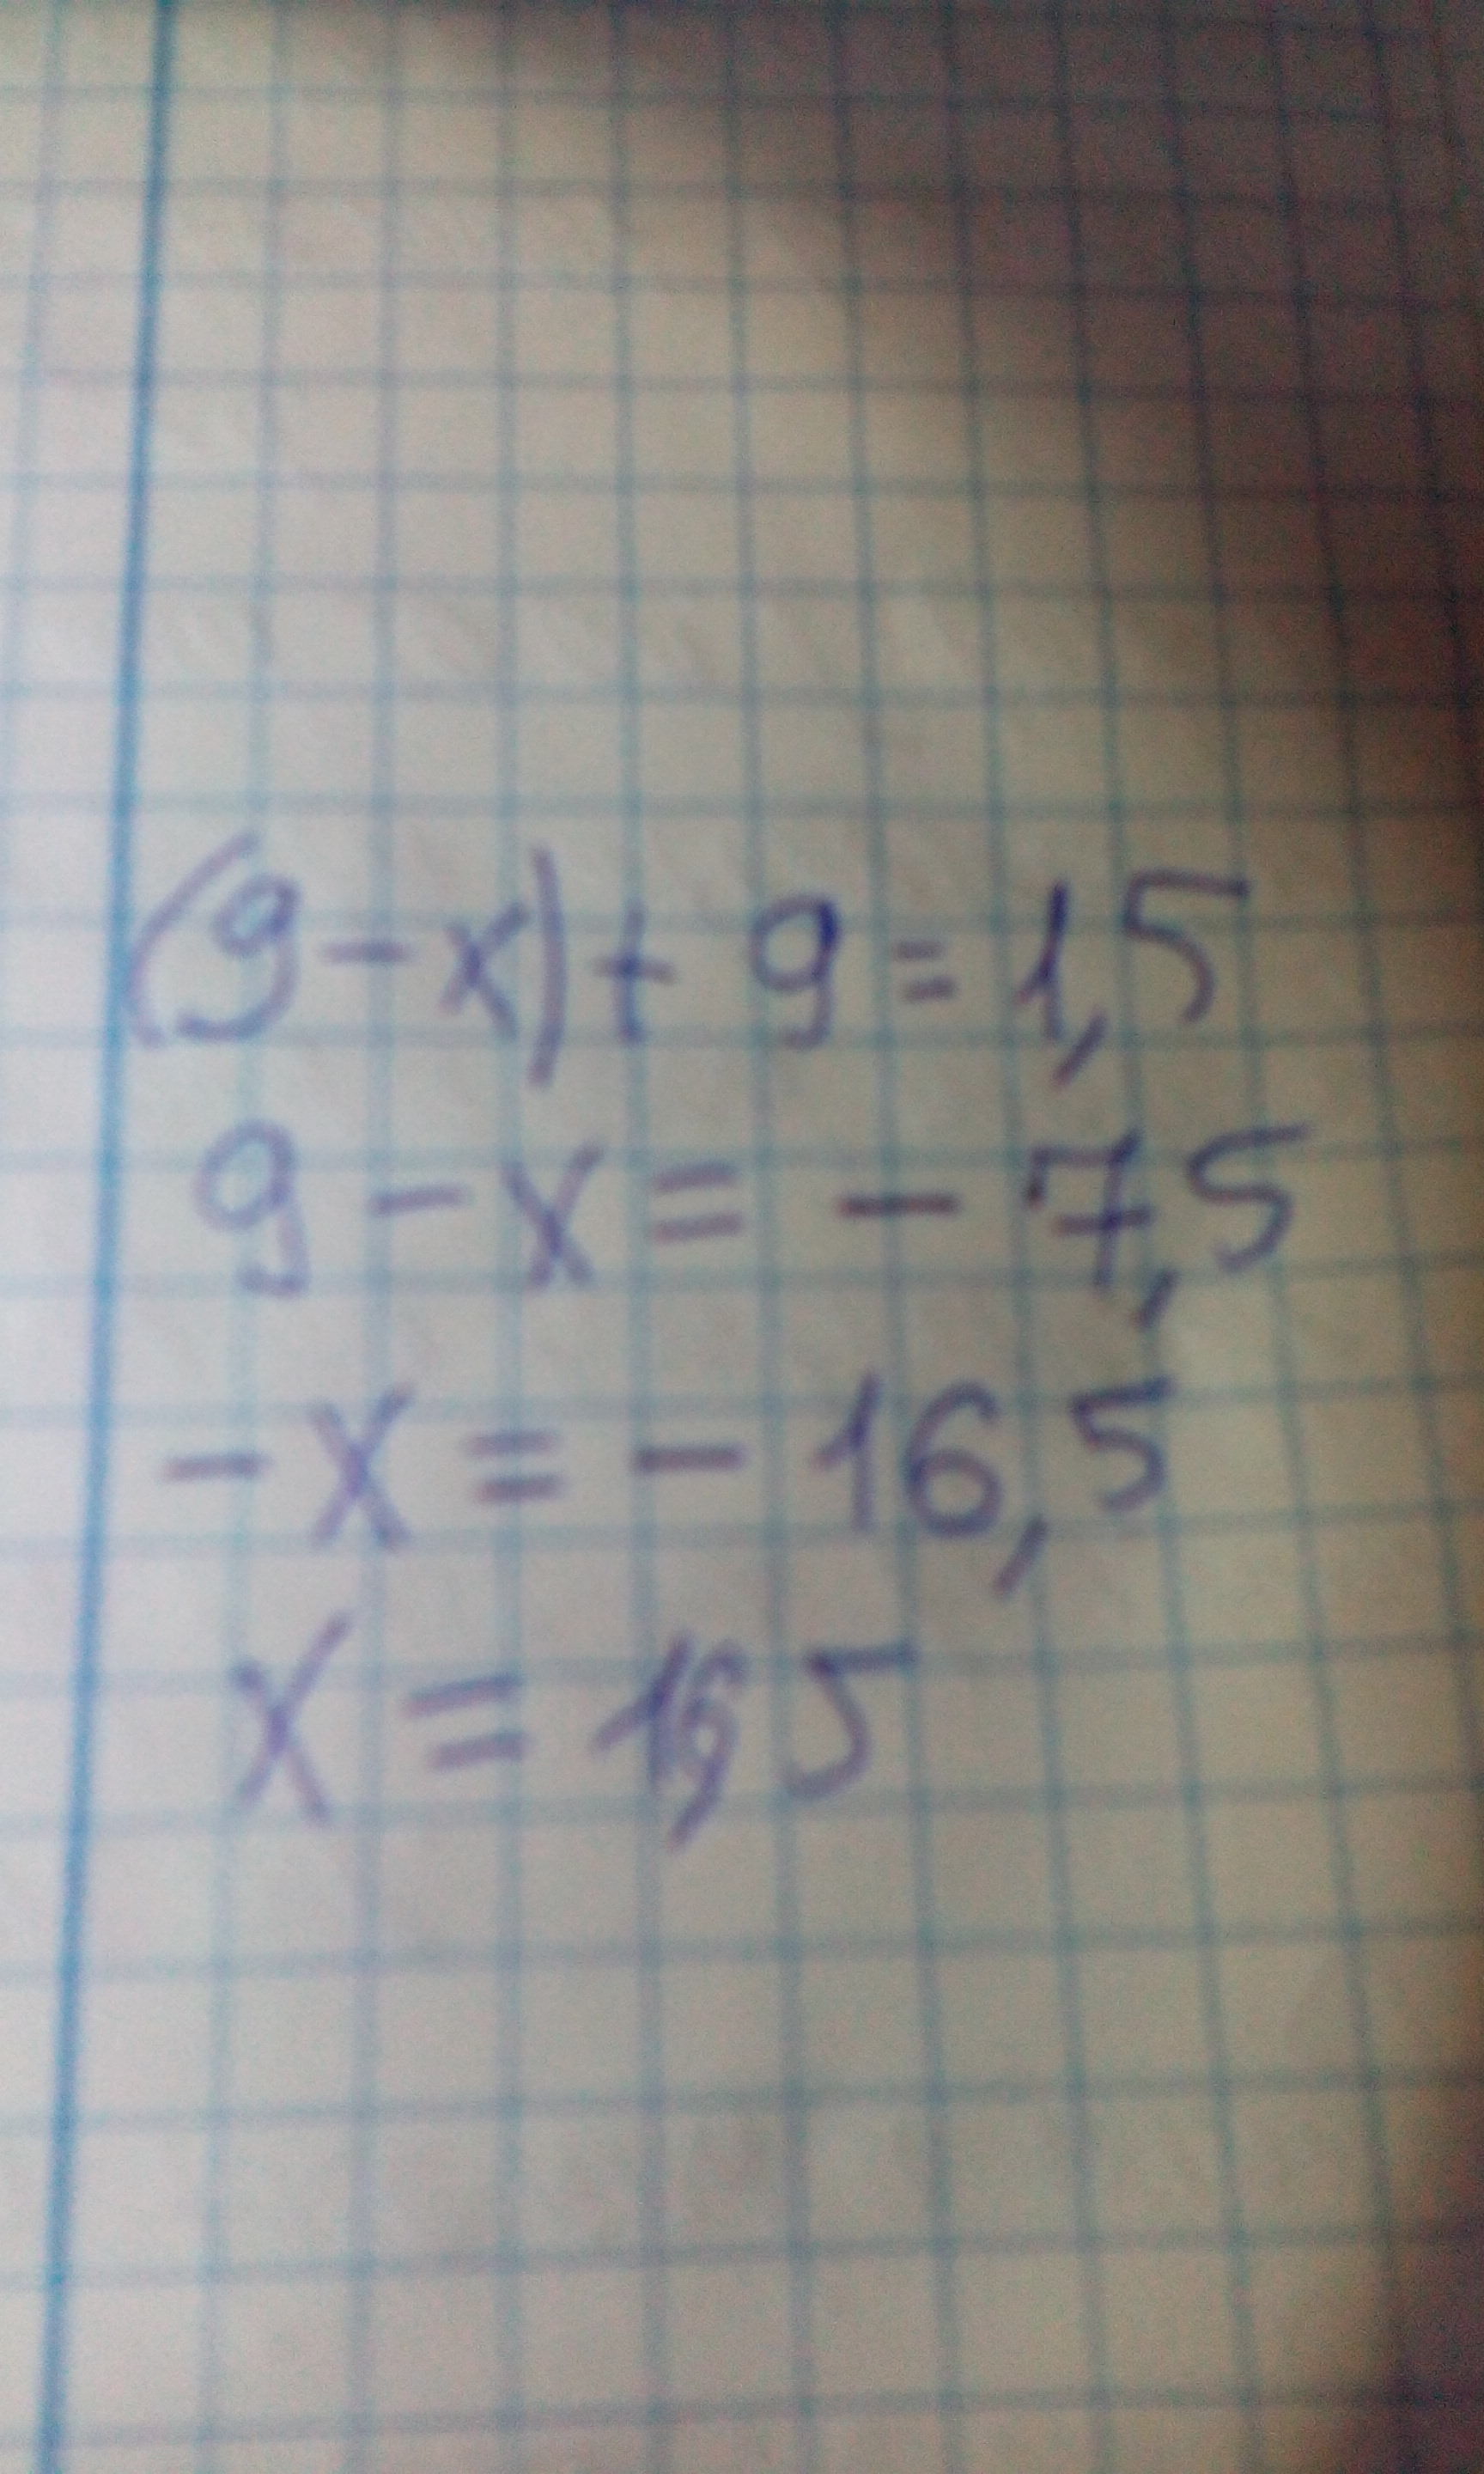 (9-x)+9=1,5
9-x=-7,5
-x=-16,5
x=16,5